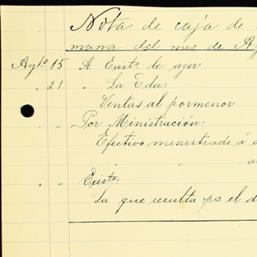 Nota de caja de
mana del mes de Ag
Agto 15 A Exista de ayer
" 21 " La Eda:
Ventas al pormenor
" " Por Ministración:
Efectivo ministrado á
" " a
" " Exista:
La que resulta pa el d